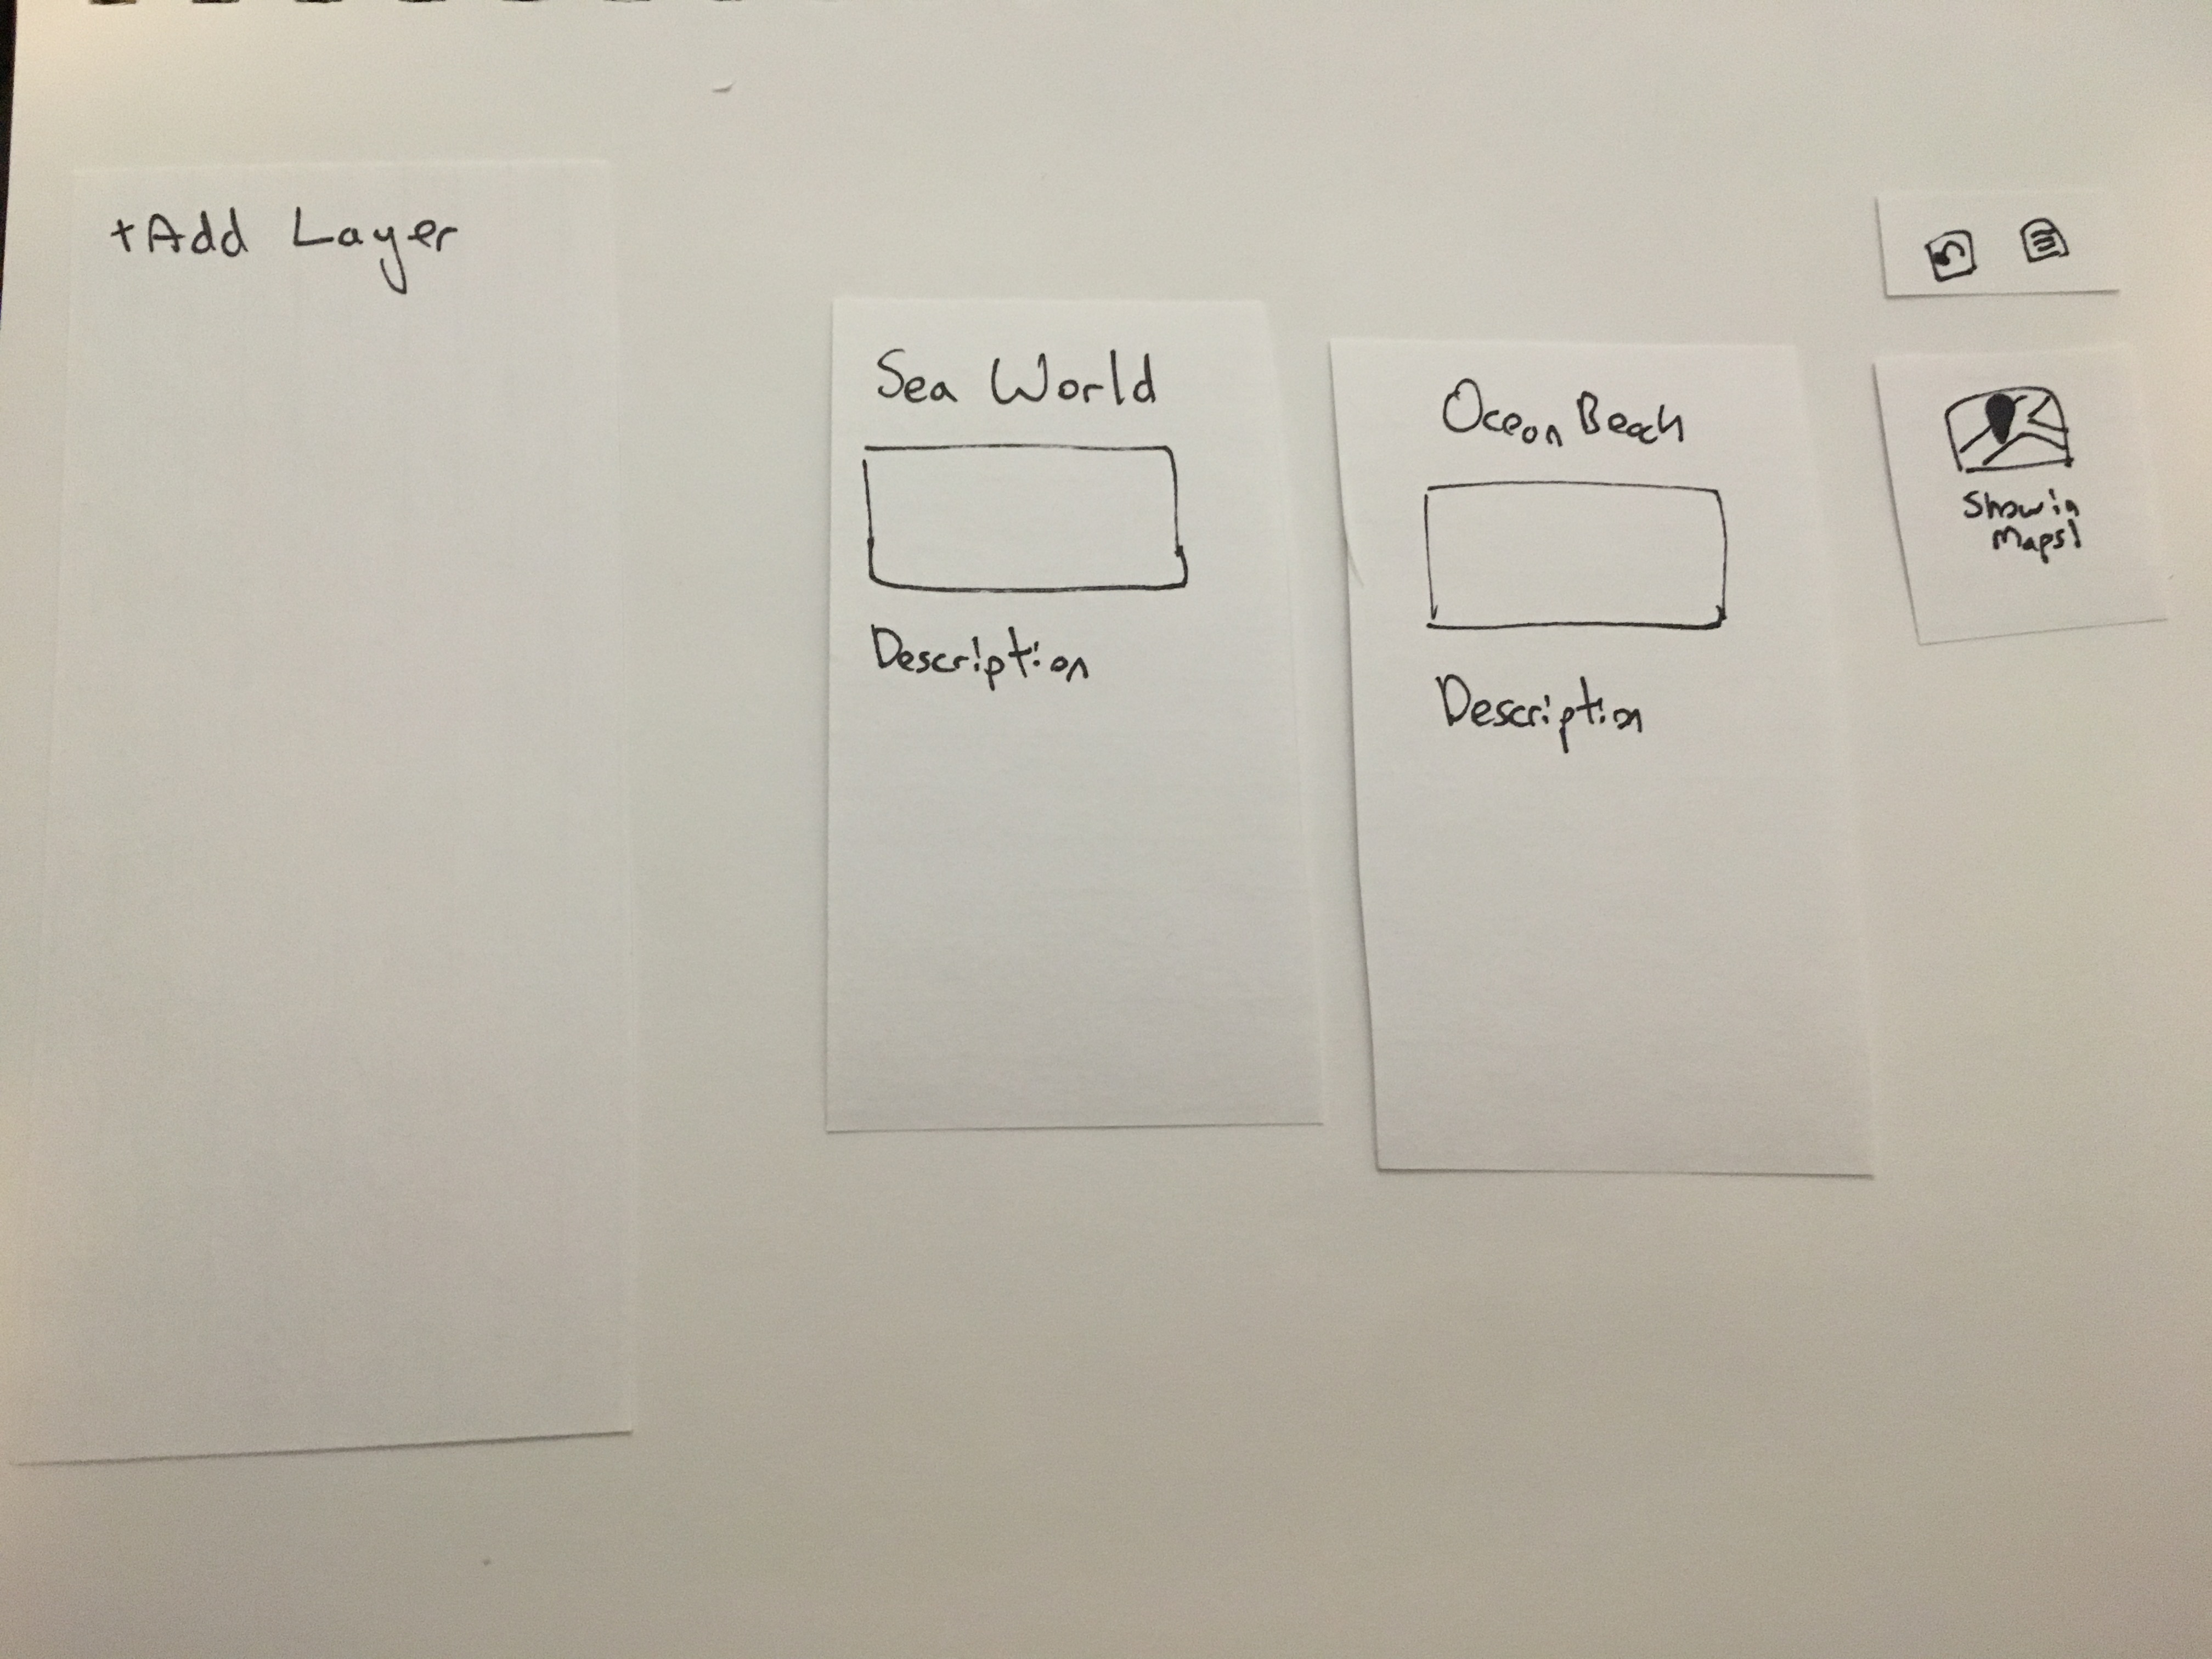 +Add Layer
Sea World
Description
Ocean Beach
Description
Show in
Maps!